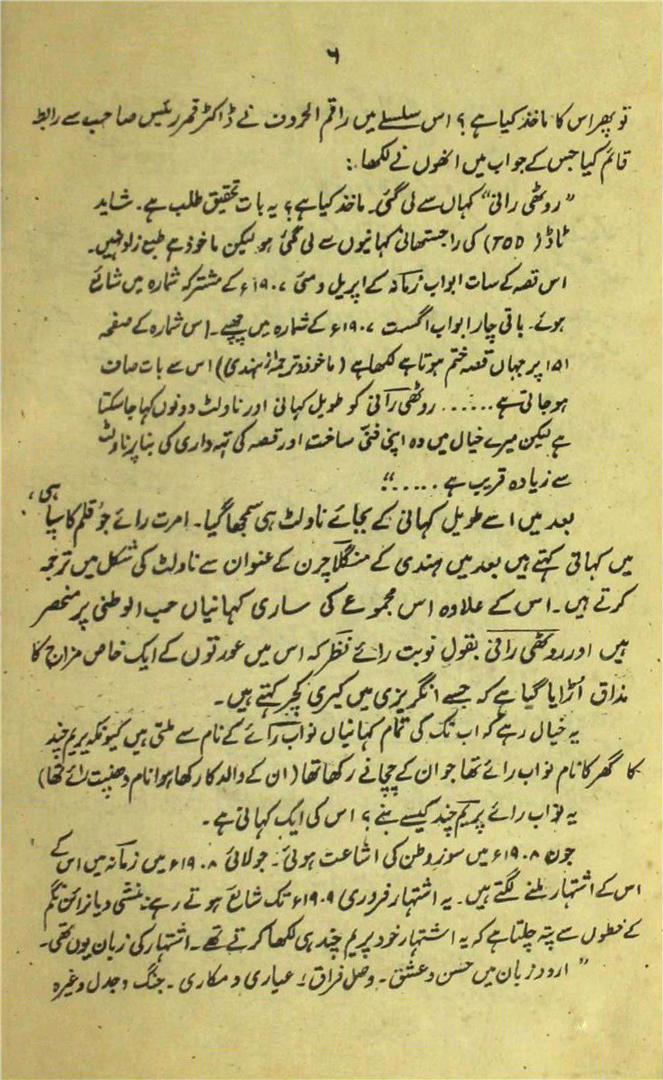 ۶
تو پھر اس کا ماخذ کیا ہے؟ اس سلسلے میں راقم الحروف نے ڈاکٹر قمر رئیس صاحب سے رابطہ
قائم کیا جس کے جواب میں انھوں نے لکھا:
”روٹھی رانی“ کہاں سے لی گئی۔ ماخذ کیا ہے؟ یہ بات تحقیق طلب ہے۔ شاید
ٹاڈ (TOD) کی راجستھانی کہانیوں سے لی گئی ہو لیکن ماخوذ ہے طبع زاد نہیں۔
اس قصہ کے سات ابواب زمانہ کے اپریل و مئی ۱۹۰۷ء کے مشترکہ شمارہ میں شائع
ہوئے۔ باقی چار ابواب اگست ۱۹۰۷ء کے شمارہ میں چھپے۔ اس شمارہ کے صفحہ
۱۵۱ پر جہاں قصہ ختم ہوتا ہے لکھا ہے (ماخوذ و ترجمہ از ہندی) اس سے بات صاف
ہو جاتی ہے...... روٹھی رانی کو طویل کہانی اور ناولٹ دونوں کہا جا سکتا
ہے لیکن میرے خیال میں وہ اپنی فنی ساخت اور قصہ کی تہہ داری کی بنا پر ناولٹ
سے زیادہ قریب ہے.....“
بعد میں اسے طویل کہانی کے بجائے ناولٹ ہی سمجھا گیا۔ امرت رائے جو قلم کا سپاہی،
میں کہانی کہتے ہیں بعد میں ہندی کے منگلاچرن کے عنوان سے ناولٹ کی شکل میں ترجمہ
کرتے ہیں۔ اس کے علاوہ اس مجموعے کی ساری کہانیاں حب الوطنی پر منحصر
ہیں اور روٹھی رانی بقول نوبت رائے نظر کہ اس میں عورتوں کے ایک خاص مزاج کا
مذاق اُڑایا گیا ہے کہ جسے انگریزی میں کیری کیچر کہتے ہیں۔
یہ خیال رہے کہ اب تک کی تمام کہانیاں نواب رائے کے نام سے ملتی ہیں کیونکہ پریم چند
کا گھر کا نام نواب رائے تھا جو ان کے چچا نے رکھا تھا (ان کے والد کا رکھا ہوا نام دھنپت رائے تھا)
یہ نواب رائے پریم چند کیسے بنے؟ اس کی ایک کہانی ہے۔
جون ۱۹۰۸ء میں سوز وطن کی اشاعت ہوئی۔ جولائی ۱۹۰۸ء میں زمانہ میں اس کے
اس کے اشتہار ملنے لگتے ہیں۔ یہ اشتہار فروری ۱۹۰۹ء تک شائع ہوتے رہے۔ منشی دیا نرائن نگم
کے خطوں سے پتہ چلتا ہے کہ یہ اشتہار خود پریم چند ہی لکھا کرتے تھے۔ اشتہار کی زبان یوں تھی۔
”اردو زبان میں حسن و عشق۔ وصل فراق؛ عیاری و مکاری۔ جنگ و جدل وغیرہ